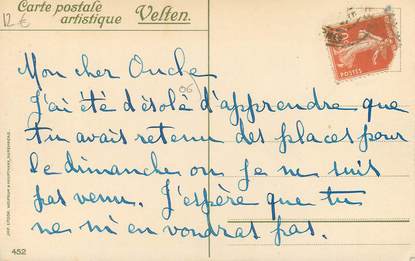 Carte postale
artistique
Velten.
12 €
POSTES
Mon cher Oncle
06
J'ai été désolé d'apprendre que
tu avais retenu des places pour
le dimanche ou je ne suis
pas venu. J'espère que tu
ne m'en voudras pas.
452